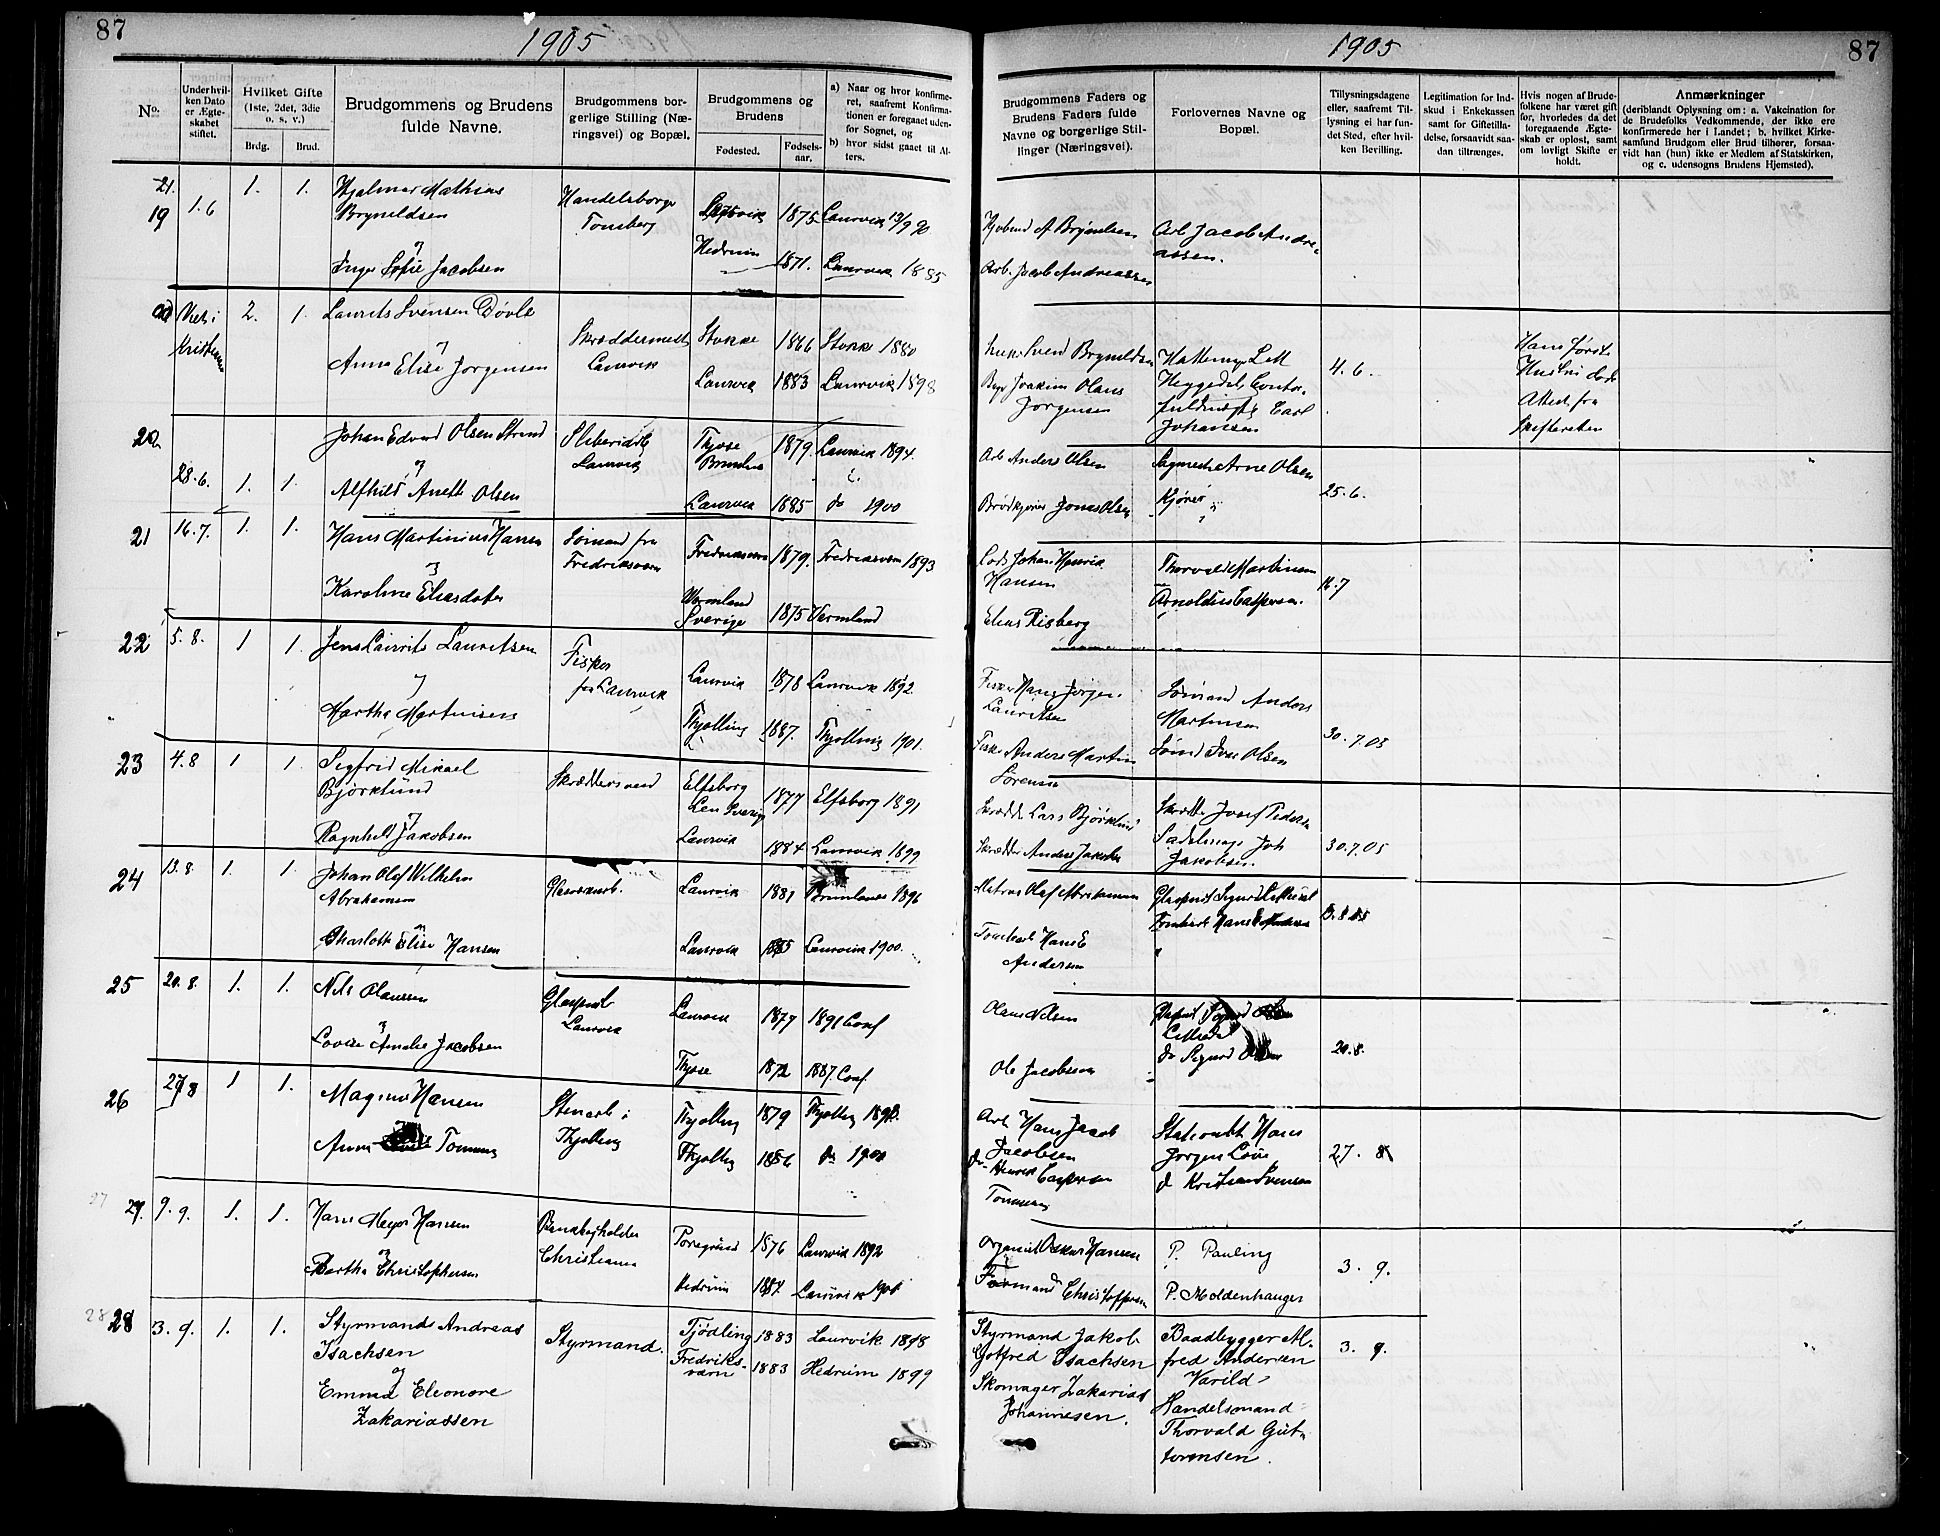 87
1905
No.
Under hvil-
ken Dato
er Ægte-
skabet
stiftet.
Hvilket Gifte
(1ste, 2det, 3die
o. s. v.)
Brdg.
Brud.
Brudgommens og Brudens
fulde Navne.
Brudgommens bor-
gerlige Stilling (Næ-
ringsvei) og Bopæl.
Brudgommens og
Brudens
Fødested.
Fødsels-
aar.
a) Naar og hvor konfirme-
ret, saafremt Konfirma-
tionen er foregaaet uden-
for Sognet, og
b) hvor sidst gaaet til Al-
ters.
21.
19
1.6
1.
1.
Hjalmar Mathias
Bryneldsen
Inger Sofie Jacobsen
Handelsborger
Tønsberg
Laurvik 1875 Laurvik 13/9 90
Hedrum 1871. Laurvik 1885
Viet i
Kristiania
2.
1.
Laurits Svensen Døvle
Anna Elise Jørgensen
Skræddermester
Laurvik
Stokke 1866 Stokke 1880
Laurvik 1883 Laurvik 1898
20
28.6.
1.
1.
Johan Edvard Olsen Strand
Alfhild Anette Olsen
Sliberiarb
Laurvik
Thjose
Brunlanes
1879. Laurvik 1894.
Laurvik 1885 do 1900
21
16.7.
1.
1.
Hans Martinius Hansen
Karoline Eliasdater
Sømand fra
Fredriksværn
Fredriksværn 1879. Fredriksværn 1893
Vermland
Sverige 1875 Vermland
22
5.8.
1
1.
Jens Laurits Lauritsen
Martha Martinsen
Fisker
fra Laurvik
Laurvik 1878 Laurvik 1892
Thjølling 1887. Thjølling 1901.
23
4.8
1
1.
Sigfrid Mikael
Bjørklund
Ragnhild Jakobsen
Skræddersvend
Elfsborg
Len Sverige
1877 Elfsborg 1891
Laurvik
1884 Laurvik 1899
24
13.8.
1.
1.
Johan Olaf Wilhelm
Abrahamsen
Charlotte Elise Hansen
Glasværkarb.
Laurvik 1881 Brunlanes 1896
Laurvik 1885 Laurvik 1900.
25
20.8.
1.
1.
Nils Olaussen
Lovise Amalie Jacobsen
Glaspust
Laurvik
Laurvik 1877 1891 Conf
Thjose 1872 1887. Conf.
26
27.8
1
1.
Magnus Hansen
Anna Tommesen
Stenarb i
Thjølling
Thjølling 1879 Thjølling
Thjølling 1886 do 1900
27
27.
9.9.
1.
1.
Hans Meyer Hansen
Bertha Christophersen
Bankbogholder
Christiania
Porsgrund 1876 Laurvik 1892
Hedrum 1884. Laurvik 1901
28
28
3.9.
1.
1.
Styrmand Andreas
Isachsen
og
Emma Eleonore
Zakariassen
Styrmand.
Tjødling 1883 Laurvik 1898
Fredriks-
værn 1883 Hedrum 1899
87
1905
Brudgommens Faders og
Brudens Faders fulde
Navne og borgerlige Stil-
linger (Næringsvei).
Forlovernes Navne og
Bopæl.
Tillysningsdagene
eller, saafremt Til-
lysning ei har fun-
det Sted, efter hvil-
ken Bevilling.
Legitimation for Ind-
skud i Enkekassen
samt for Giftetilla-
delse, forsaavidt saa-
dan tiltrænges.
Hvis nogen af Brude-
folkene har været gift
før, hvorledes da det
foregaaende Ægte-
skab er opløst, samt
om lovligt Skifte er
holdt.
Anmærkninger
(deriblandt Oplysning om: a. Vakcination for
de Brudefolks Vedkommende, der ikke ere
konfirmerede her i Landet; b. hvilket Kirke-
samfund Brudgom eller Brud tilhører, forsaa-
vidt han (hun) ikke er Medlem af Statskirken,
og c. udensogns Brudens Hjemsted).
A Brynelsen
Arb. Jacob Andreassen
Arb Jacob Andre-
assen.
Sven Bryneldsen
Joakim Olaus
Jørgensen
Heggedal, Contor-
fuldmægtig Carl
Johansen
4.6.
Hans første
Hustru død
Attest fra
Skifteretten
Arb Anders Olsen
Brødkjører Jonas Olsen
Arne Olsen
Kjører
25.6.
Lods Johan Henrik
Hansen
Elias Risberg
Thorvald Martinsen
Arnoldus Caspersen.
16.7
Fisker Hans Jørgen
Lauritsen
Fisker Anders Martin
Sørensen
Sømand Anders
Martinsen
Sømd Iver Olsen
30.7.05
Skrædder Lars Bjørklund
Skrædder Anders Jakobsen
Josef Pedersen
Sadelmager Joh
Jakobsen.
30.7.05
Matros Olaf Abrahamsen
Hans E
Andersen
Glaspust Sigurd
13.8.05
Olaus Nilsen
Ole Jacobsen
do Sigurd
20.8.
Arb Hans Jacob
Jacobsen
do Henrik Caspersen
Tommesen
Hans
Jørgen Løve
d Kristian Svensen
27. 8
Organist Oskar Hansen
Formand Christoffersen
P. Pauling
P. Moldenhauger
3. 9.
Styrmand Jakob
Gotfred Isachsen
Skomager Zakarias
Johannesen.
Baadbygger Al-
fred Andersen
Varild
Handelsmand
Thorvald Gut-
tormsen.
3. 9.